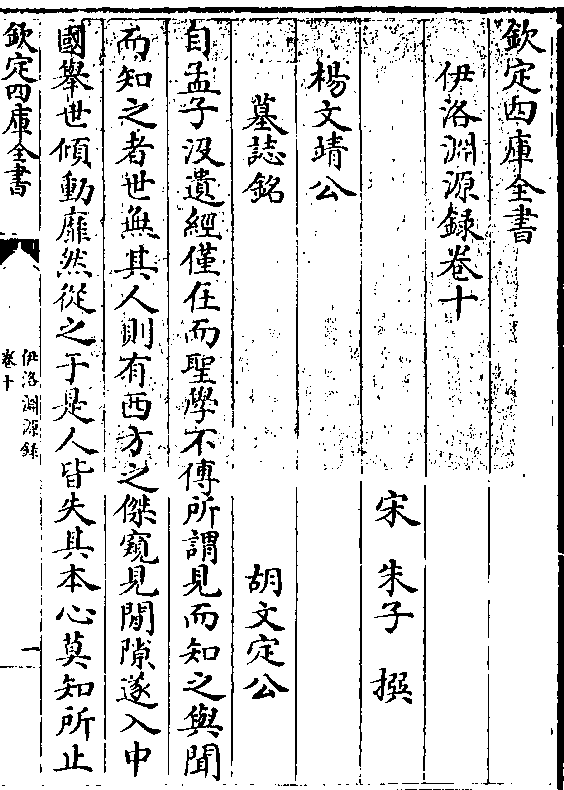 欽定四庫全書
伊洛淵源録卷十
宋 朱子 撰
楊文靖公
墓誌銘 胡文定公
自孟子沒遺經僅在而聖學不傳所謂見而知之與聞
而知之者世無其人則有西方之傑窺見間隙遂入中
國舉世傾動靡然從之于是人皆失其本心莫知所止
欽定四庫全書
伊洛淵源録
卷十
一